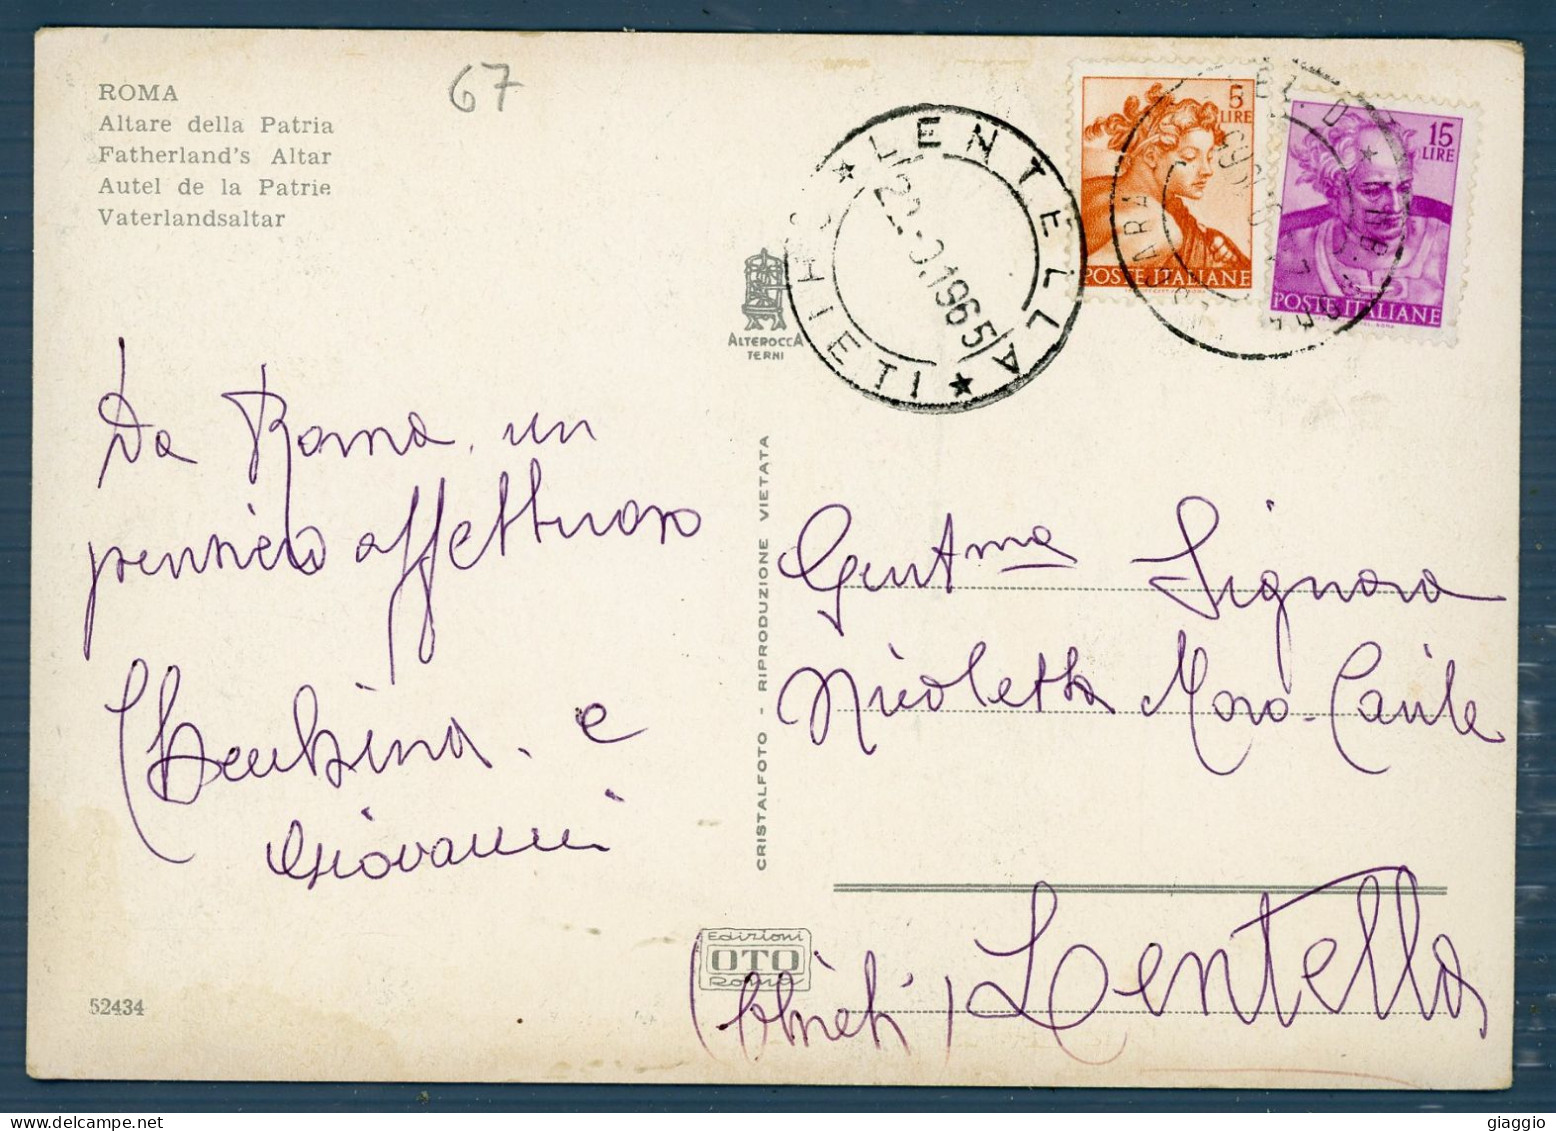 ROMA
Altare della Patria
Fatherland's Altar
Autel de la Patrie
Vaterlandsaltar
67
★ LENTELLA ★
CHIETI
22.9.1965
5
LIRE
POSTE ITALIANE
15
LIRE
POSTE ITALIANE
ALTEROCCA
TERNI
Da Roma, un
pensiero affettuoso
e
Giovanni
CRISTALFOTO - RIPRODUZIONE VIETATA
Gent.ma Signora
Nicoletta Moro-
Lentella
(Chieti)
Edizioni
OTO
Roma
52434
giaggio